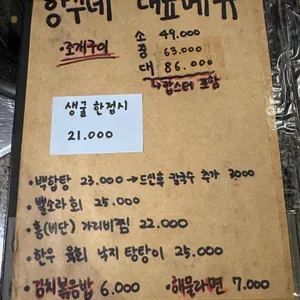 향수네 대표메뉴
·조개구이 소 49.000
중 63.000
대 86.000
랍스터 포함
생굴 한접시
21.000
·백합탕 23.000 → 드신후 칼국수 추가 3000
·뿔소라회 25.000
·홍(비단) 가리비찜 22.000
·한우 육회 낙지 탕탕이 25.000
·김치볶음밥 6.000 ·해물라면 7.000